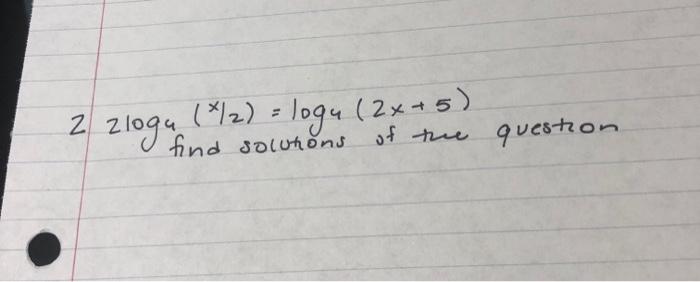 2 2log₄ (x/2) = log₄ (2x+5)
find solutions of the question